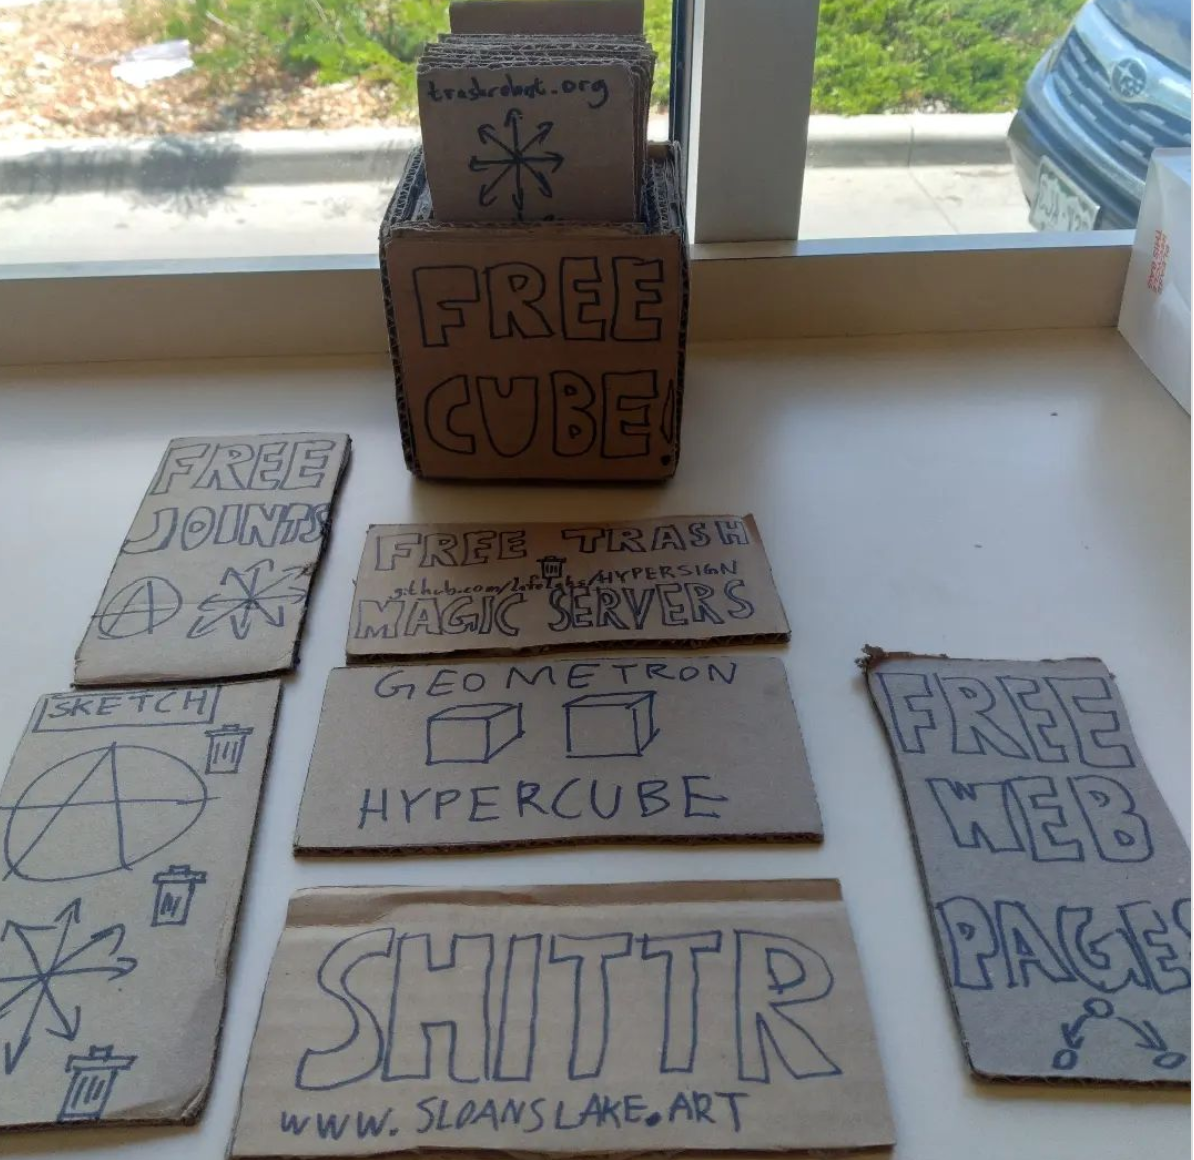 trashrobot.org
FREE
CUBE!
FREE
JOINTS
FREE TRASH
github.com/LafeLabs/HYPERSIGN
MAGIC SERVERS
SKETCH
GEOMETRON
HYPERCUBE
FREE
WEB
PAGES
SHITTR
WWW.SLOANSLAKE.ART